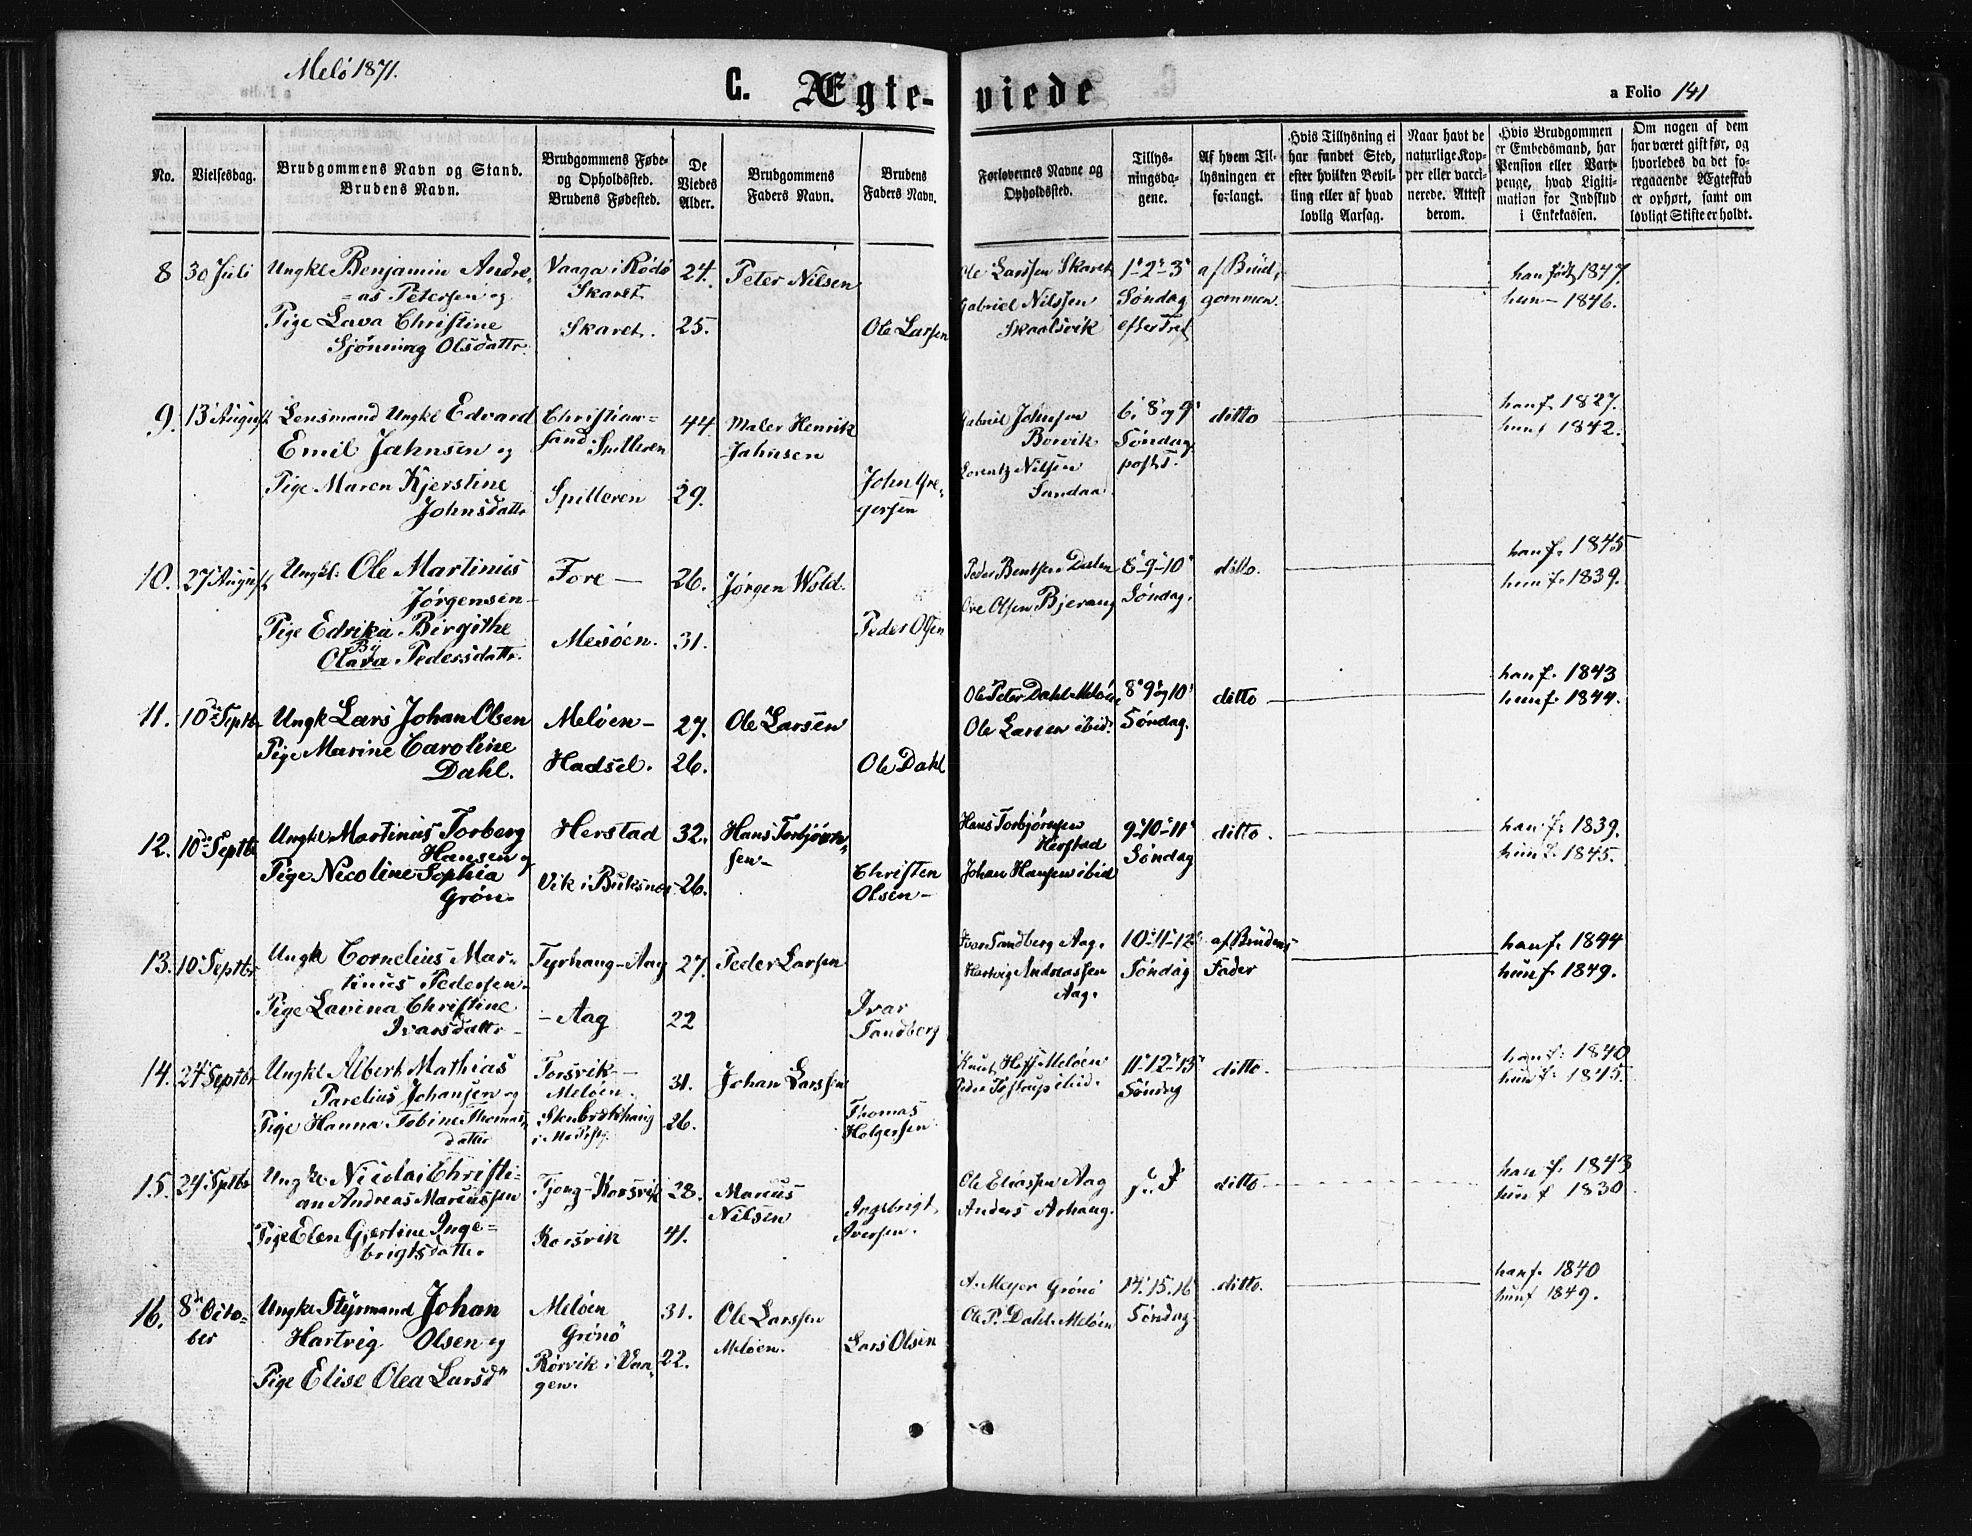 Melö 1871.
C. Ægteviede
a Folio 141
No.
Vielsesdag.
Brudgommens Navn og Stand.
Brudens Navn.
Brudgommens Føde-
og Opholdssted.
Brudens Fødested.
De
Viedes
Alder.
Brudgommens
Faders Navn.
Brudens
Faders Navn.
Forlovernes Navne og
Opholdssted.
Tillys-
ningsda-
gene.
Af hvem Til-
lysningen er
forlangt.
Hvis Tillysning ei
har fundet Sted,
efter hvilken Bevil-
ling eller af hvad
lovlig Aarsag.
Naar havt de
naturlige Kop-
per eller vacci-
nerede. Attest
derom.
Hvis Brudgommen
er Embedsmand, har
Pension eller Vart-
penge, hvad Ligiti-
mation for Indskud
i Enkekassen.
Om nogen af dem
har været gift før, og
hvorledes da det fo-
regaaende Ægteskab
er ophørt, samt om
lovligt Skifte er holdt.
8 30 Juli Ungkl Benjamin Andre-
as Petersen og
Pige Lava Christine
Sjönning Olsdattr.
Vaaga i Rödö
Skaret
Skaret.
24.
25.
Peter Nilsen
Ole Larsen
Ole Larssen Skaret
Gabriel Nilssen
Skaalsvik
1' 2' 3'
Söndag
efter Tref
af Brud-
gommen.
han født 1847.
hun — 1846.
9. 13 August Lensmand Ungkl Edvard
Emil Jahnsen og
Pige Maren Kjerstine
Johnsdattr
Christian-
sand Spilleren
Spilleren
44
29.
Maler Henrik
Jahnsen
John Gre-
gersen
Gabriel Johnsen
Borvik
Lorentz Nilsen
Sandaa.
6' 8' og 9'
Söndag
post T.
ditto
han f. 1827.
hun f 1842.
10. 27 August Ungkl. Ole Martinius
Jörgensen
Pige Edrika Birgithe
Olava Pedersdattr.
Fore —
Mesöen.
26.
31.
Jörgen Wold.
Peder Olsen
Peder Bentsen Dalen
Ove Olsen Bjerang
8'-9'-10'
Söndag.
ditto.
han f. 1845
hun f. 1839.
11. 10de Septbr Ungk Lars Johan Olsen
Pige Marine Caroline
Dahl.
Melöen —
Hadsel.
27.
26.
Ole Larsen
Ole Dahl
Ole Peter Dahl Melöen
Ole Larsen ibid.
8' 9' og 10'
Söndag.
ditto
han f. 1843
hun f. 1844.
12. 10de Septbr Ungkl Martinus Torberg
Hansen og
Pige Nicoline Sophia
Grön.
Herstad
Vik i Buksnes
32.
26.
Hans Torbjörn-
sen
Christen
Olsen
Hans Torbjörnsen
Herstad
Johan Hansen ibid
9'-10'-11'
Söndag
ditto.
han f. 1839.
hun f. 1845.
13. 10' Septbr Ungk Cornelius Mar-
tinus Pedersen
Pige Lavina Christine
Ivarsdattr
Tyrhaug-Aag
Aag
27.
22
Peder Larsen
Ivar
Sandberg
Ivar Sandberg Aag.
Hartvig Andreassen
Aag.
10'-11'-12'
Söndag
af Brudens
Fader
han f. 1844
hun f. 1849.
14. 24' Septbr Ungkl Albert Mathias
Parelius Johansen og
Pige Hanna Tobine Thomas-
datter
Torsvik
Melöen.
31.
26.
Johan Larssen
Thomas
Holgersen
Knut Hoff Melöen
ibid.
11'-12'-13'
Söndag
ditto.
han f. 1840
hun f. 1845.
15. 24' Sptbr Ungk. Nicolai Christi-
an Andreas Marcussen
Pige Elen Gjertine Inge-
brigtsdatter
Tjong-Korsvik
Korsvik
28.
41.
Marcus
Nilsen
Ingebrigt
Iversen.
Ole Eliassen Aag
Anders Arhaug.
ditto
han f. 1843
hun f 1830
16. 8de Octo-
ber
Ungkl Styrmand Johan
Hartvig Olsen og
Pige Elise Olea Larsd
Melöen
Grönö
Rörvik i Vaa-
gen.
31.
22.
Ole Larssen
Melöen.
Lars Olsen
A. Meyer Grönö
Ole P. Dahl. Melöen
14'. 15. 16'
Söndag
ditto.
han f. 1840
hun f 1849.